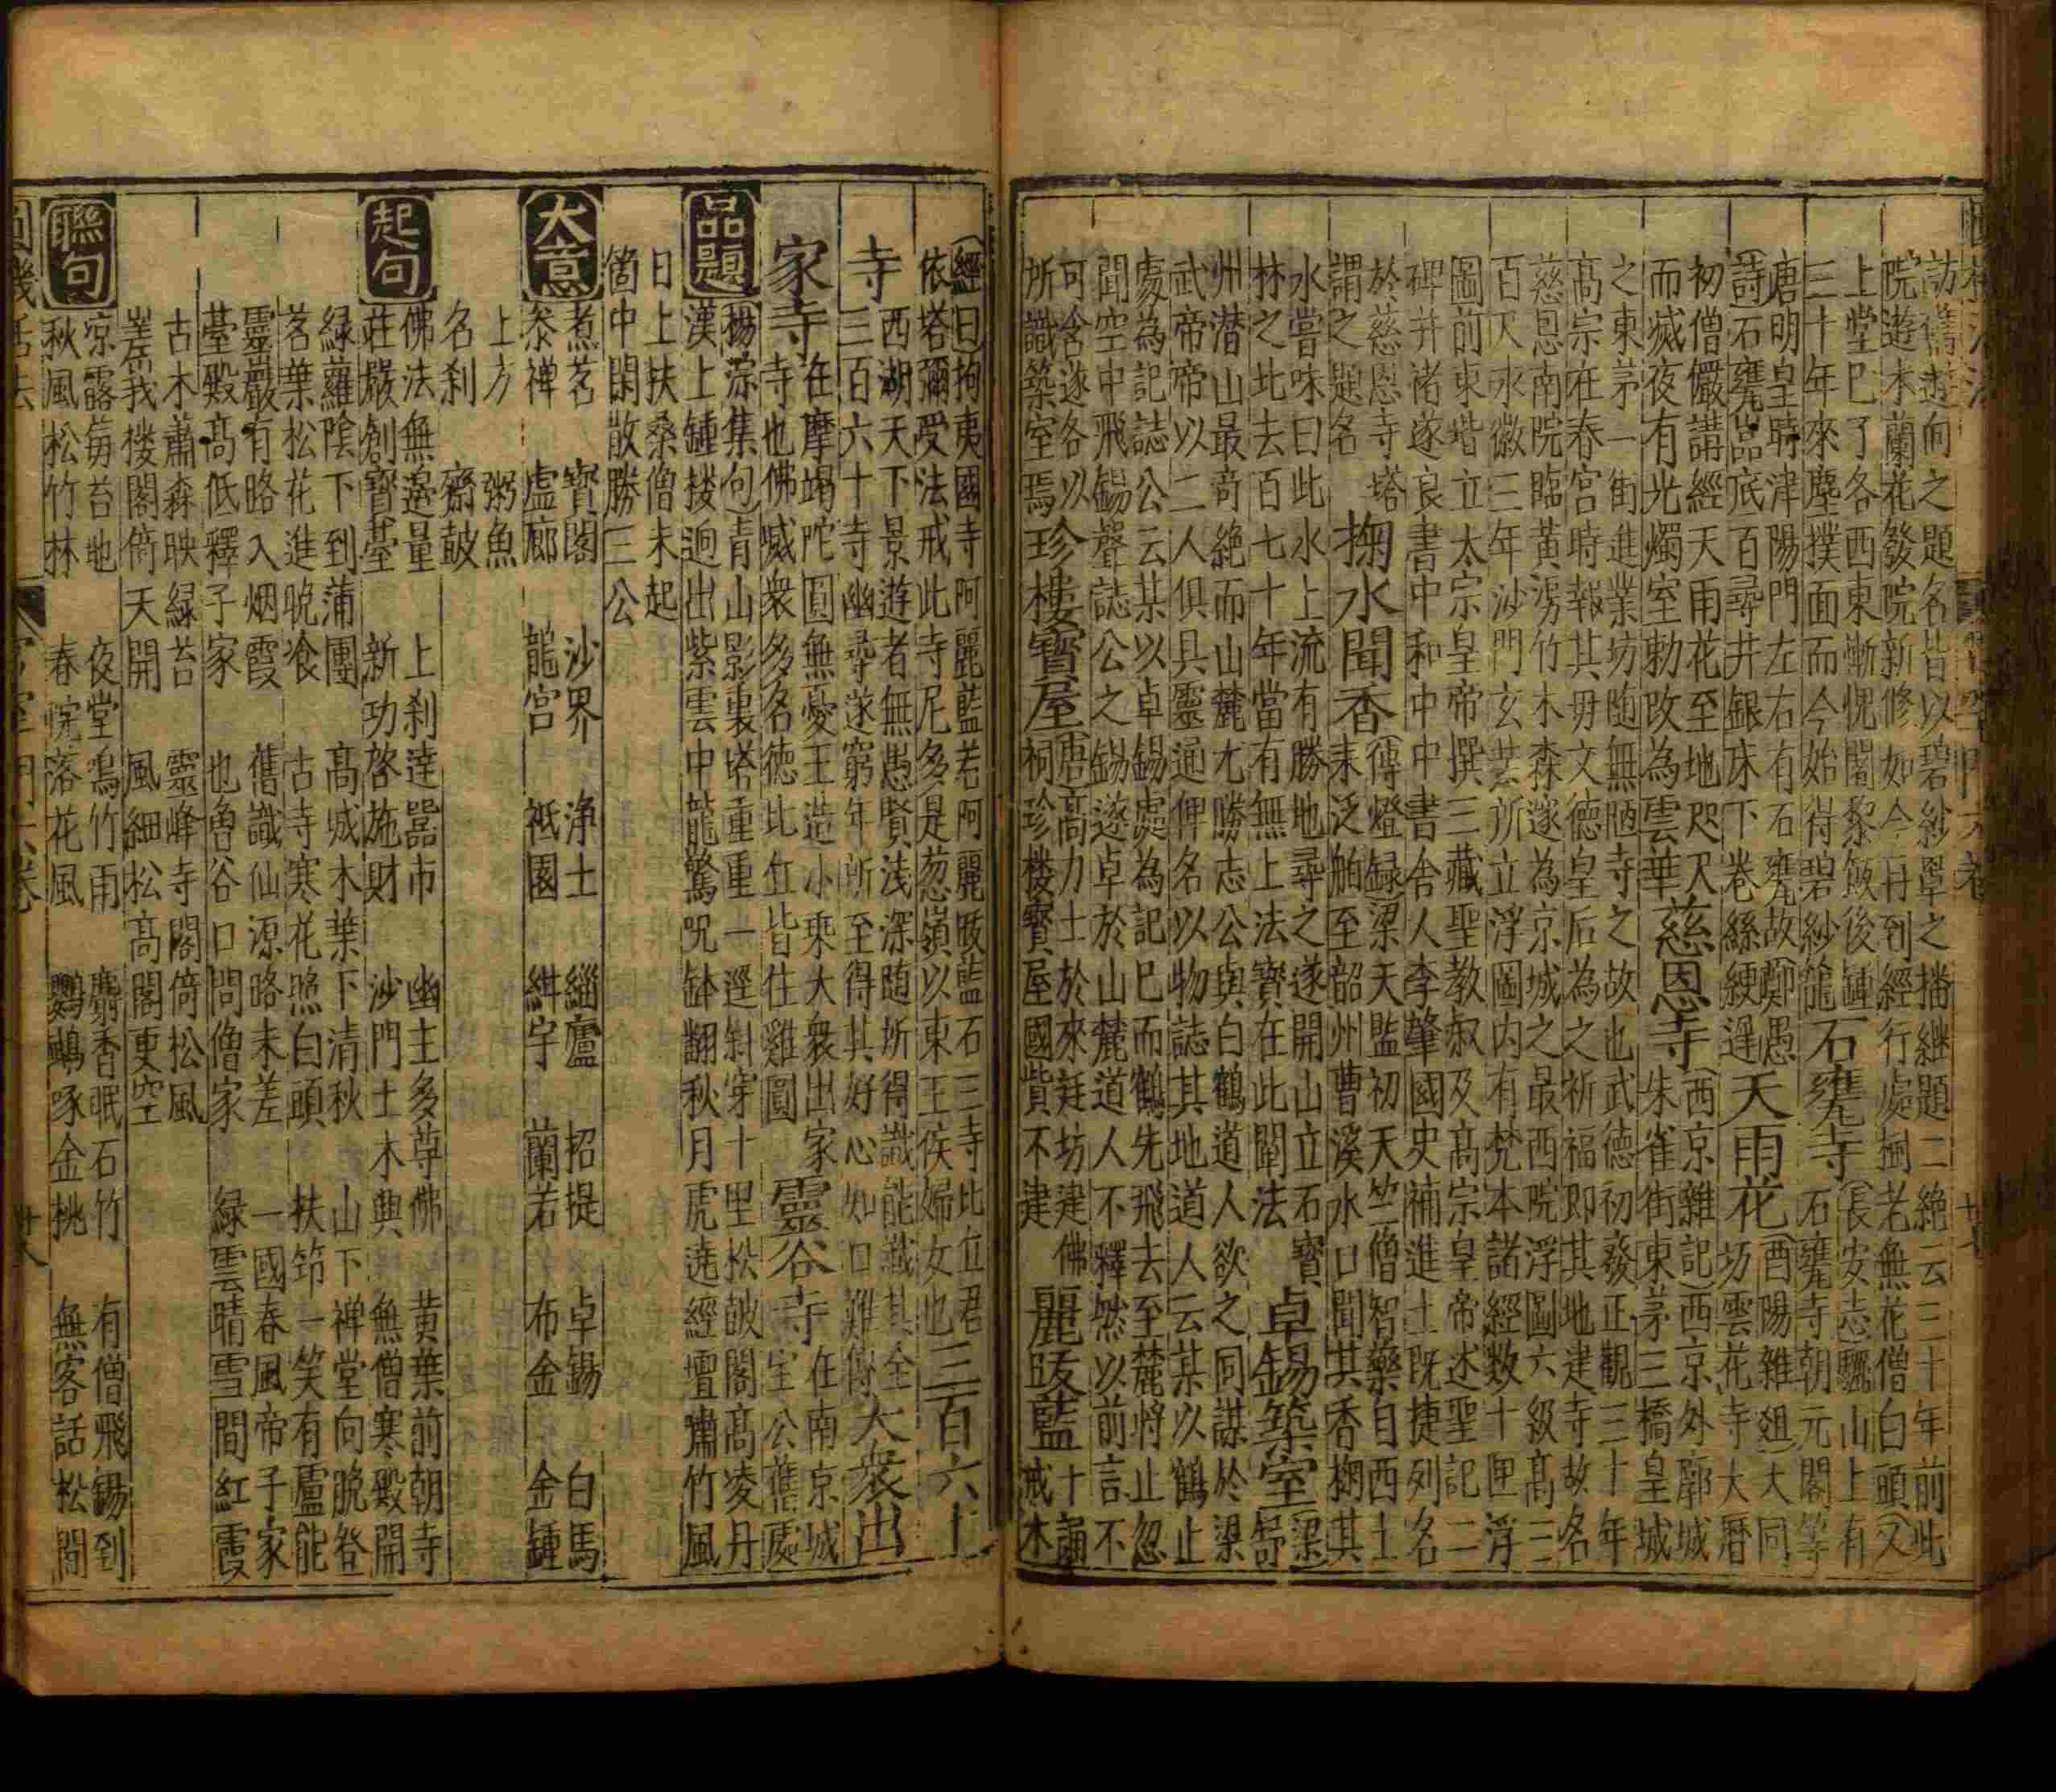 訪舊遊向之題名皆以碧紗罩之播継題二絶云三十年前此
院遊木蘭花發院新修如今再到經行處樹老無花僧白頭又
上堂巳了各西東慚愧闍黎飯後鍾
三十年來塵撲面而今始得碧紗籠
石甕寺
長安志驪山上有
石甕寺朝元閣等
唐明皇時津陽門左右有石甕故鄭愚
詩石甕嵓底百尋井銀床下卷絲綆遲
天雨花
酉陽雜俎大同
坊雲花寺大曆
初僧儼講經天雨花至地咫尺
而㓕夜有光燭室勅改為雲華
慈恩寺
西京雜記西京外廓城
朱雀街東茅三橋皇城
之東茅一街進業坊随無陋寺之故也武德初發正觀三十年
髙宗在春宫時報其毋文德皇后為之祈福即其地建寺故名
慈恩南院臨黄澇竹木森邃為京城之最西院浮圖六級髙三
百尺永徽三年沙門玄奘所立浮圖内有梵本諸經数十匣浮
圖前東堦立太宗皇帝撰三藏聖教叙及髙宗皇帝述聖記二
碑并褚遂良書中和中中書舍人李肇國史補進士既捷列名
於慈恩寺塔
謂之題名
掬水聞香
傳燈録梁天監初天竺僧智藥自西土
來泛舶至韶州曹溪水口聞其香掬其
水嘗味曰此水上流有勝地尋之遂開山立石寳
林之此去百七十年當有無上法寳在此闡法
卓錫築室
梁
舒
州潜山最竒絶而山麓尤勝志公與白鶴道人欲之同謀於梁
武帝帝以二人俱具靈通俾名以物誌其地道人云某以鶴止
處為記誌公云某以卓錫處為記巳而鶴先飛去至麓将止忽
聞空中飛錫聲誌公之錫遂卓於山麓道人不釋然以前言不
可含遂各以
所識築室焉
珍樓寳屋
唐髙力士於來廷坊建佛
祠珍楼寳屋國貲不建
麗䟦藍
十誦
戒木
經曰拘夷國寺阿麗藍若阿麗䟦藍石三寺比丘君
依塔彌受法戒此寺尼多是葱嶺以東王侯婦女也
三百六十
寺
西湖天下景遊者無愚賢浅深随所得識能識其全
三百六十寺幽尋遂窮年所至得其好心知口難傳
大衆出
家寺
在摩竭陀圓無憂王造小乘大衆出家
寺也佛㓕衆多名德比丘皆住雞圓
靈谷寺
在南京城
宝公舊處
品題
楊淙集句青山影裏塔重重一逕斜穿十里松皷閣髙凌丹
漢上鍾楼逈出紫雲中龍驚咒缽翻秋月虎遶經壇嘯竹風
日上扶桑僧未起
箇中閑散勝三公
大意
煮茗　寳閣　沙界　浄土　緇廬　招提　卓錫　白馬
叅禅　虚廊　龍宫　祗園　紺宇　蘭若　布金　金鍾
上方　粥魚
名刹　齋皷
起句
佛法無邉量　上刹逹嚣市　幽主多尊佛　黄葉前朝寺
莊嚴創寳䑓　新功啓施財　沙門土木興　無僧寒殿開
緑蘿陰下到蒲團　髙城木葉下清秋　山下禅堂向晩登
茗葉松花進晩飡　古寺寒花照白頭　扶笻一笑有廬能
靈巖有略入烟霞　舊識仙源路未差　一國春風帝子家
䑓殿髙低釋子家　也魯谷口問僧家　緑雲晴雪間紅霞
古木蕭森映緑苔　靈峰寺閣倚松風
崖我楼閣倚天開　風細松髙閣更空
聮句
凉露毎苔地　夜堂鳴竹雨　麝香眠石竹　有僧飛錫到
秋風松竹林　春院落花風　鸚鵡啄金桃　無客話松間